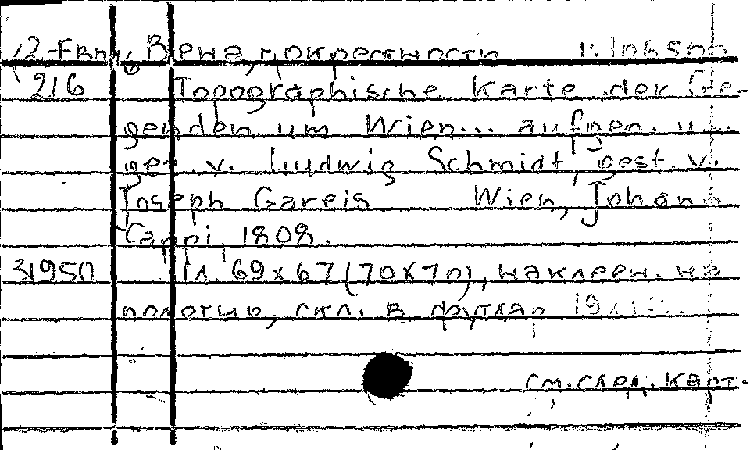 Вена, окрестности
216 Topographische Karte der Ge-
genden um Wien... aufgen. u.
gez. v. Ludwig Schmidt, gest. v.
Joseph Gareis Wien, Johann
Cappi, 1808.
31950 1 л. 69x67 (70x70), наклеен. на
полотно, скл. в футляр
см. след. карт.